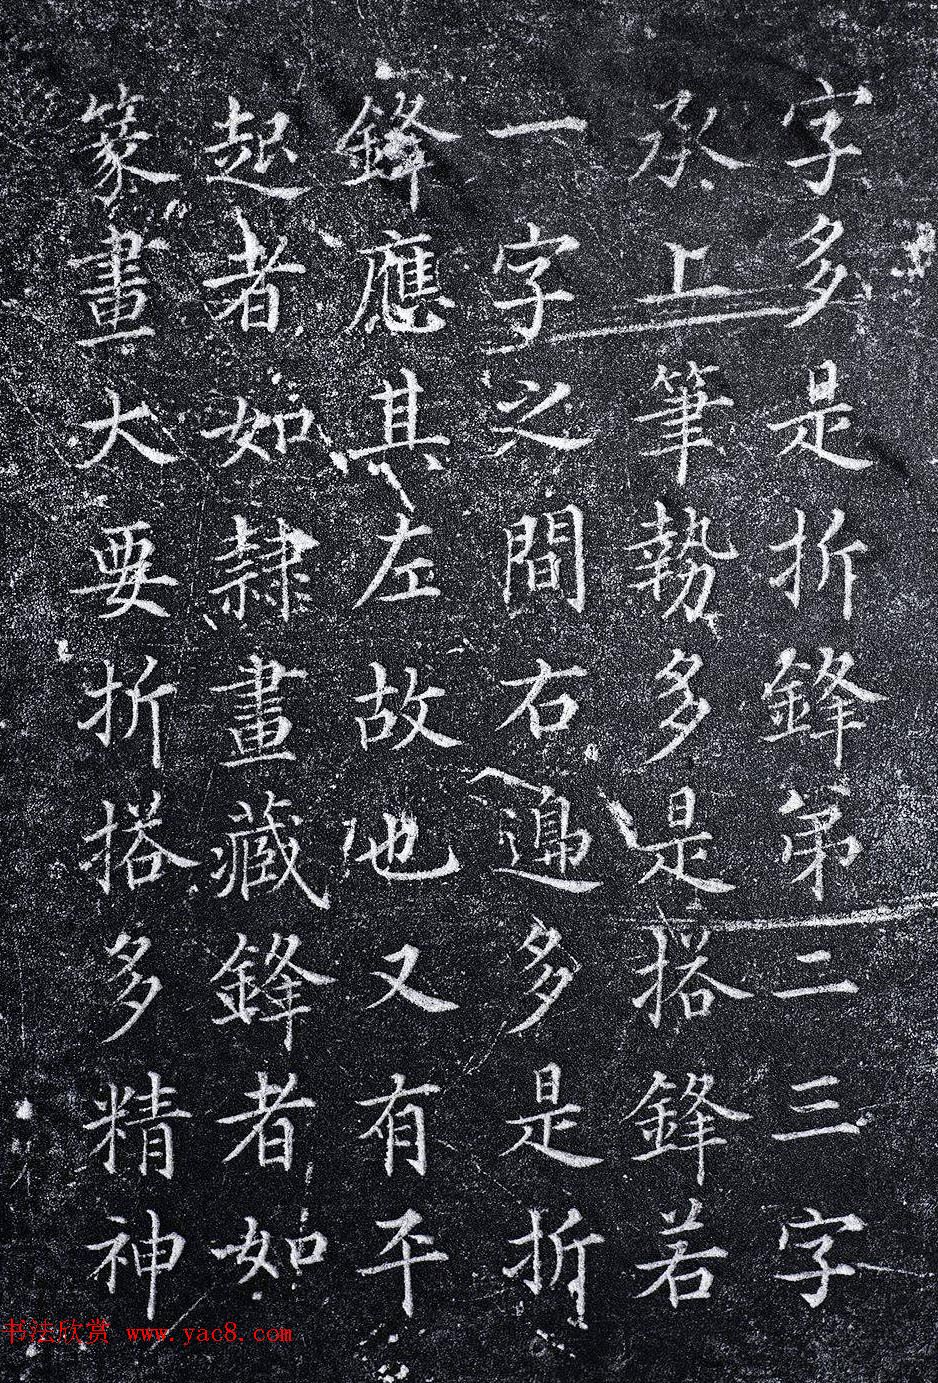 字多是折鋒第二三字
承上筆勢多是搭鋒若
一字之間右邊多是折
鋒應其左故也又有平
起者如隸畫藏鋒者如
篆畫大要折搭多精神
书法欣赏 www.yac8.com